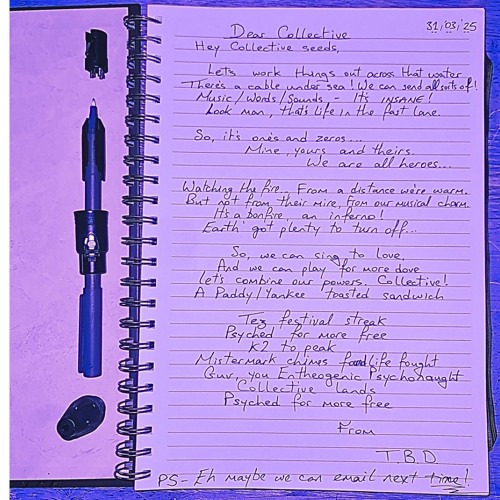 31/03/'25
Dear Collective
Hey Collective seeds,
Let's work things out across that water
There's a cable under sea! We can send all sorts of!
Music/Words/Sounds - It's INSANE!
Look man, that's life in the fast lane.
So, it's ones and zeros...
Mine, yours and theirs.
We are all heroes...
Watching the fire.. From a distance we're warm.
But not from their mire, from our musical charm.
It's a bonfire, an inferno!
Earth' got plenty to turn off...
So, we can sing to love,
And we can play for more dove
Let's combine our powers. Collective!
A Paddy/Yankee toasted sandwich
Tez festival streak
Psyched for more free
K2 to peak
Mistermark chimes life fought
Guv, you Entheogenic Psychonaught
Collective lands
Psyched for more free
From
T.B.D.
PS- Eh maybe we can email next time!